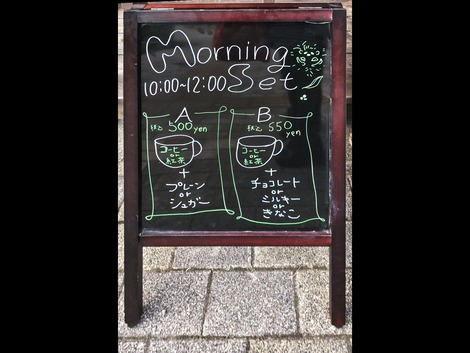 Morning
10:00~12:00 Set
A
税込 500yen
コーヒー
or
紅茶
+
プレーン
or
シュガー
B
税込 550
yen
コーヒー
or
紅茶
+
チョコレート
or
ミルキー
or
きなこ